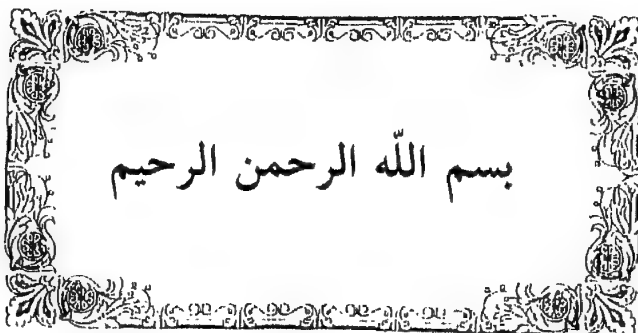 بسم اللّه الرحمن الرحيم